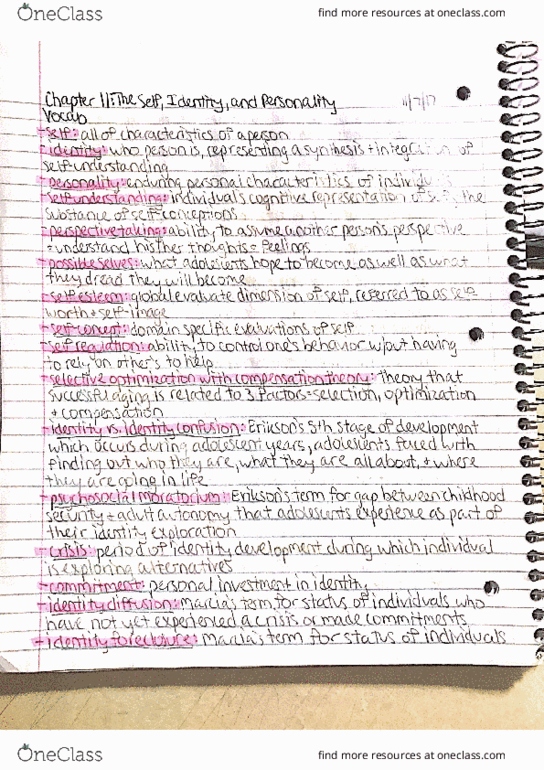 OneClass
find more resources at oneclass.com
Chapter 11: The Self, Identity, and Personality 11/7/17
Vocab
-self: all of characteristics of a person
-identity: who person is, representing a synthesis + integration of
self-understanding
-personality: enduring personal characteristics of individuals
-self understanding: individual's cognitive representation of self, the
substance of self-conceptions
-perspective taking: ability to assume another person's perspective
+ understand his/her thoughts + feelings
-possible selves: what adolescents hope to become as well as what
they dread they will become
-self esteem: global evaluate dimension of self, referred to as self
worth + self-image
-self-concept: domain specific evaluations of self
-self regulation: ability to control one's behavior w/out having
to rely on other's to help
-selective optimization with compensation theory: Theory that
successful aging is related to 3 factors: selection, optimization
+ compensation
-identity vs. identity confusion: Erikson's 5th stage of development
which occurs during adolescent years, adolescents faced with
finding out who they are, what they are all about, + where
they are going in life
-psychosocial moratorium: Erikson's term for gap between childhood
security + adult autonomy that adolescents experience as part of
their identity exploration
-crisis: period of identity development during which individual
is exploring alternatives
-commitment: personal investment in identity
-identity diffusion: Marcia's term for status of individuals who
have not yet experienced a crisis or made commitments
-identity foreclosure: Marcia's term for status of individuals
OneClass
find more resources at oneclass.com